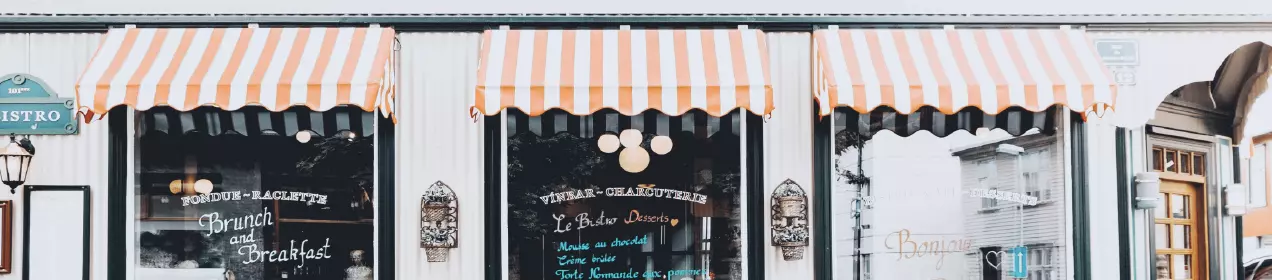 101ème
BISTRO
FONDUE ~ RACLETTE
Brunch
and
Breakfast
VÍNBAR ~ CHARCUTERIE
Le Bistro Desserts
Mousse au chocolat
Crème brûlée
Torte Normande aux pommes
Bonjour